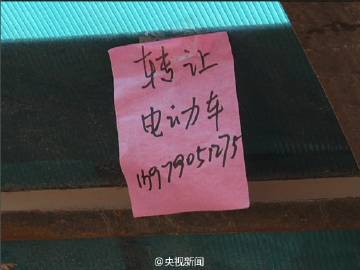 转让
电动车
15979051275
@央视新闻